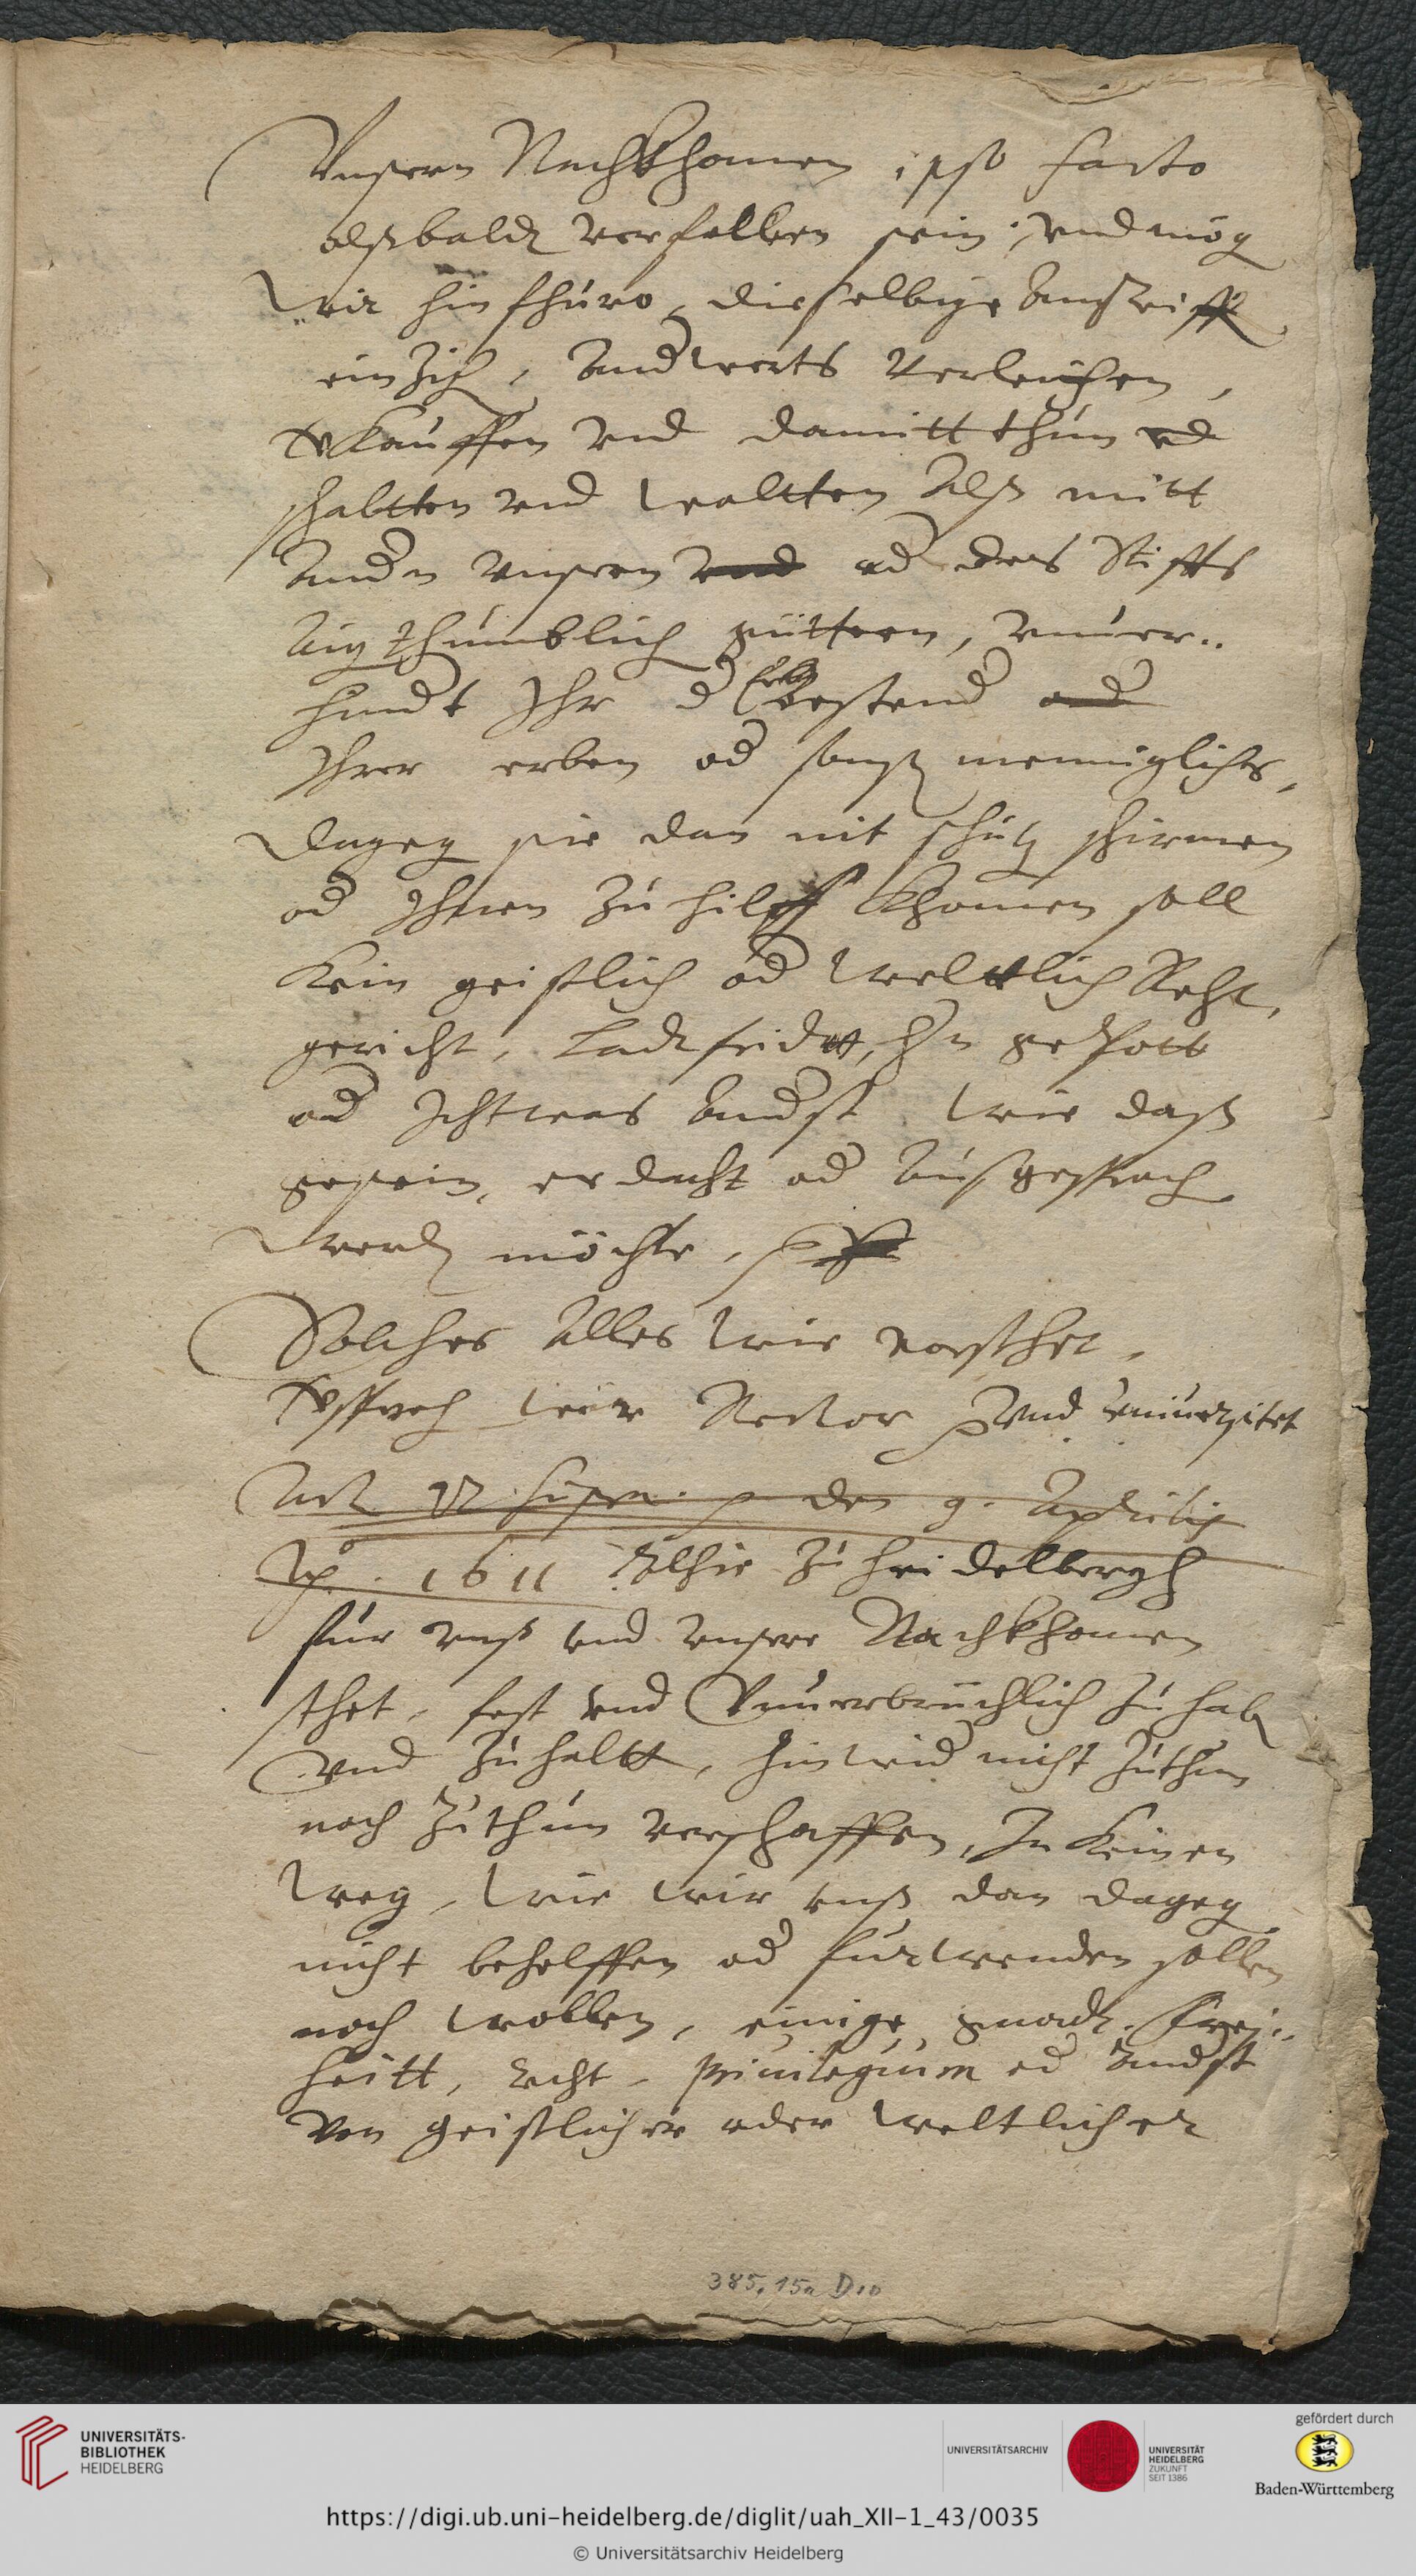 Unsern Nachkhomen ipso facto
alßbaldt verfallen sein, und mög
wir hinfhüro, dieselbige angriff
einzich, anderwerts verleihen,
verkauffen und damitt thun und
schaltten und waltten alß mitt
andern unseren und od des Stiffts
aigthumblich güttern, unver..
hindt Ihr d Erb bestend and
Ihrer erben od sonst menigliches,
Dageg sie dan nit schutz schirmen
od Ihnen zu hilff khomen soll
kein geistlich od welttlich Recht,
gericht, Landtfridtt, gepott
od Ichtwas anderst wie daß
gesein, erdacht od außgesprach
werdt möchte,
Solches alles wie vorsthet,
versprech wir Rector und universitet
Act den 9. Aprilis
1611 alhie zu heidelbergh
für unß und unsere Nachkhomen
sthet, fest und Unverbrüchlich zu hab
und zu haltt, hinwid nicht zuthun
noch zuthun verschaffen, In keinen
weg, wie wir unß dan dageg
nicht behelffen od fürwenden sollen
noch wollen, einige gnadt. frei..
heitt, recht, privilegium od anderst
von geistlicher oder weltlicher
385,15a D10
UNIVERSITÄTS-
BIBLIOTHEK
HEIDELBERG
UNIVERSITÄTSARCHIV
UNIVERSITÄT
HEIDELBERG
ZUKUNFT
SEIT 1386
gefördert durch
Baden-Württemberg
https://digi.ub.uni-heidelberg.de/diglit/uah_XII-1_43/0035
© Universitätsarchiv Heidelberg